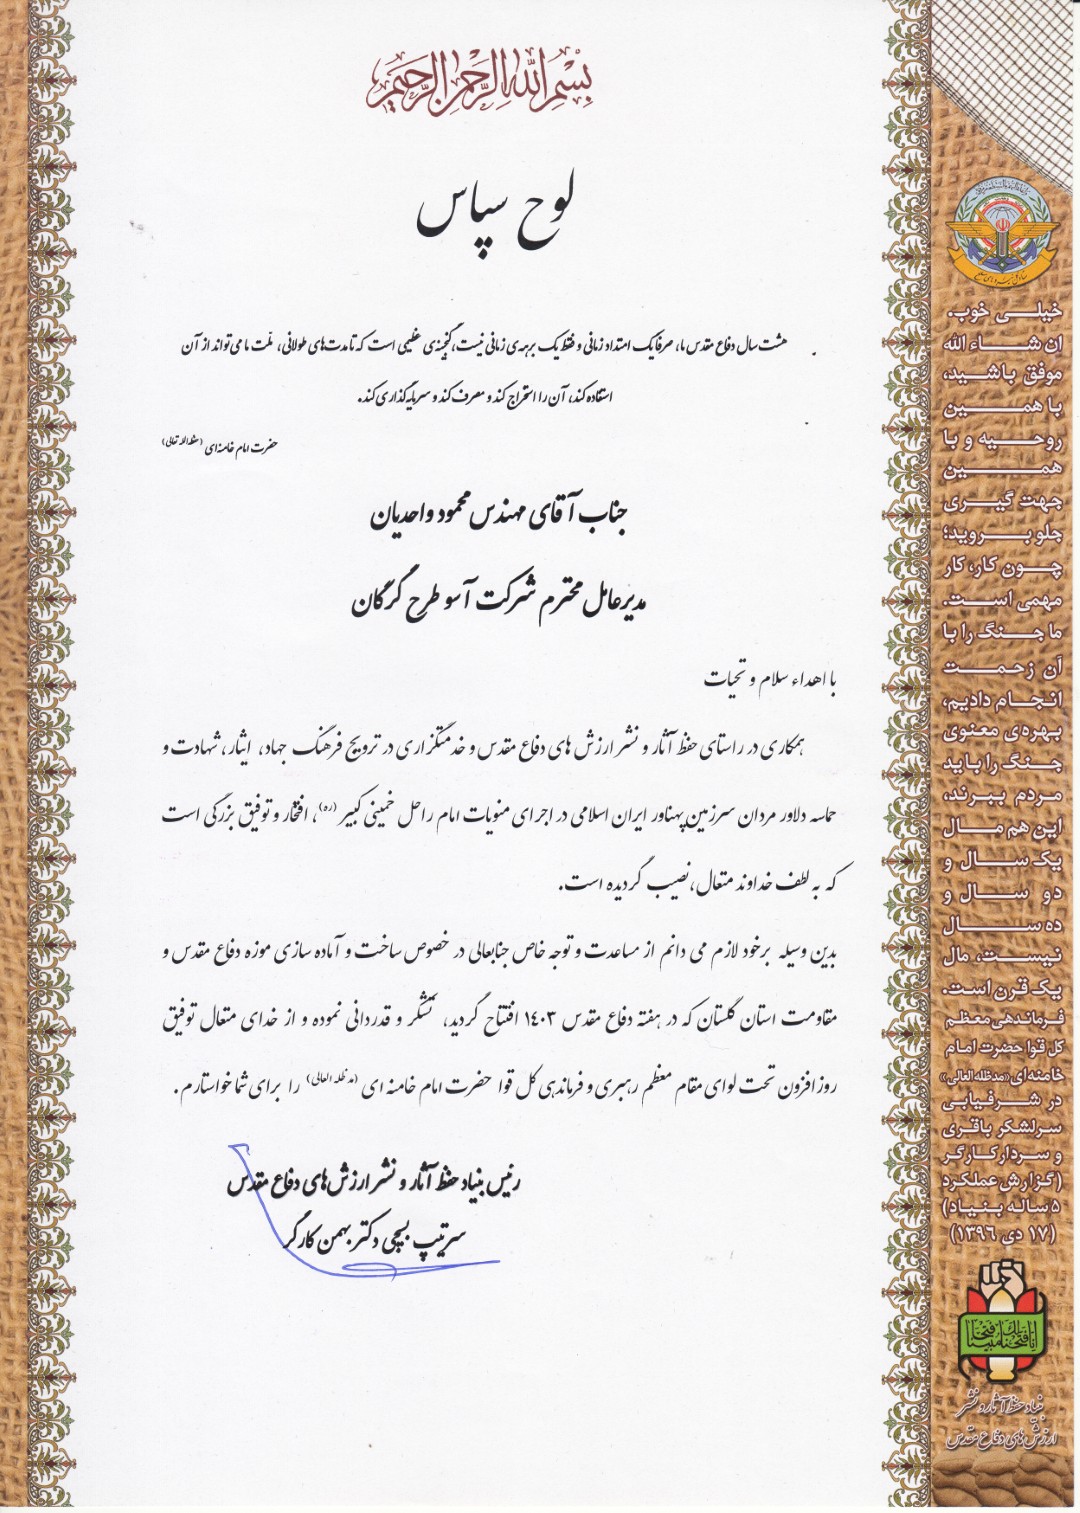 بسم الله الرحمن الرحیم
لوح سپاس
هشت سال دفاع مقدس ما، صرفا یک امتداد زمانی و فقط یک برهه‌ی زمانی نیست، گنجینه‌ی عظیمی است که تا مدت‌های طولانی، ملّت ما می‌تواند از آن
استفاده کند، آن را استخراج کند و مصرف کند و سرمایه گذاری کند.
حضرت امام خامنه‌ای (حفظه الله تعالی)
جناب آقای مهندس محمود واحدیان
مدیرعامل محترم شرکت آسو طرح گرگان
با اهداء سلام و تحیات
همکاری در راستای حفظ آثار و نشر ارزش های دفاع مقدس و خدمتگزاری در ترویج فرهنگ جهاد، ایثار، شهادت و
حماسه دلاور مردان سرزمین پهناور ایران اسلامی در اجرای منویات امام راحل خمینی کبیر (ره)، افتخار و توفیق بزرگی است
که به لطف خداوند متعال، نصیب گردیده است.
بدین وسیله برخود لازم می دانم از مساعدت و توجه خاص جنابعالی در خصوص ساخت و آماده سازی موزه دفاع مقدس و
مقاومت استان گلستان که در هفته دفاع مقدس ۱۴۰۳ افتتاح گردید، تشکر و قدردانی نموده و از خدای متعال توفیق
روز افزون تحت لوای مقام معظم رهبری و فرماندهی کل قوا حضرت امام خامنه ای (مدظله العالی) را برای شما خواستارم.
رئیس بنیاد حفظ آثار و نشر ارزش‌های دفاع مقدس
سرتیپ بسیجی دکتر بهمن کارگر
ستاد کل نیروهای مسلح
خیلی خوب.
ان شاء الله
موفق باشید،
با همین
روحیه و با
همین
جهت گیری
جلو بروید؛
چون کار، کار
مهمی است.
ما جنگ را با
آن زحمت
انجام دادیم،
بهره‌ی معنوی
جنگ را باید
مردم ببرند،
این هم مال
یک سال و
دو سال و
ده سال
نیست، مال
یک قرن است.
فرماندهی معظم
کل قوا حضرت امام
خامنه‌ای «مدظله العالی»
در شرفیابی
سرلشکر باقری
و سردار کارگر
(گزارش عملکرد
۵ ساله بنیاد)
(۱۷ دی ۱۳۹۶)
انا فتحنا لک فتحا مبینا
بنیاد حفظ آثار و نشر
ارزش های دفاع مقدس